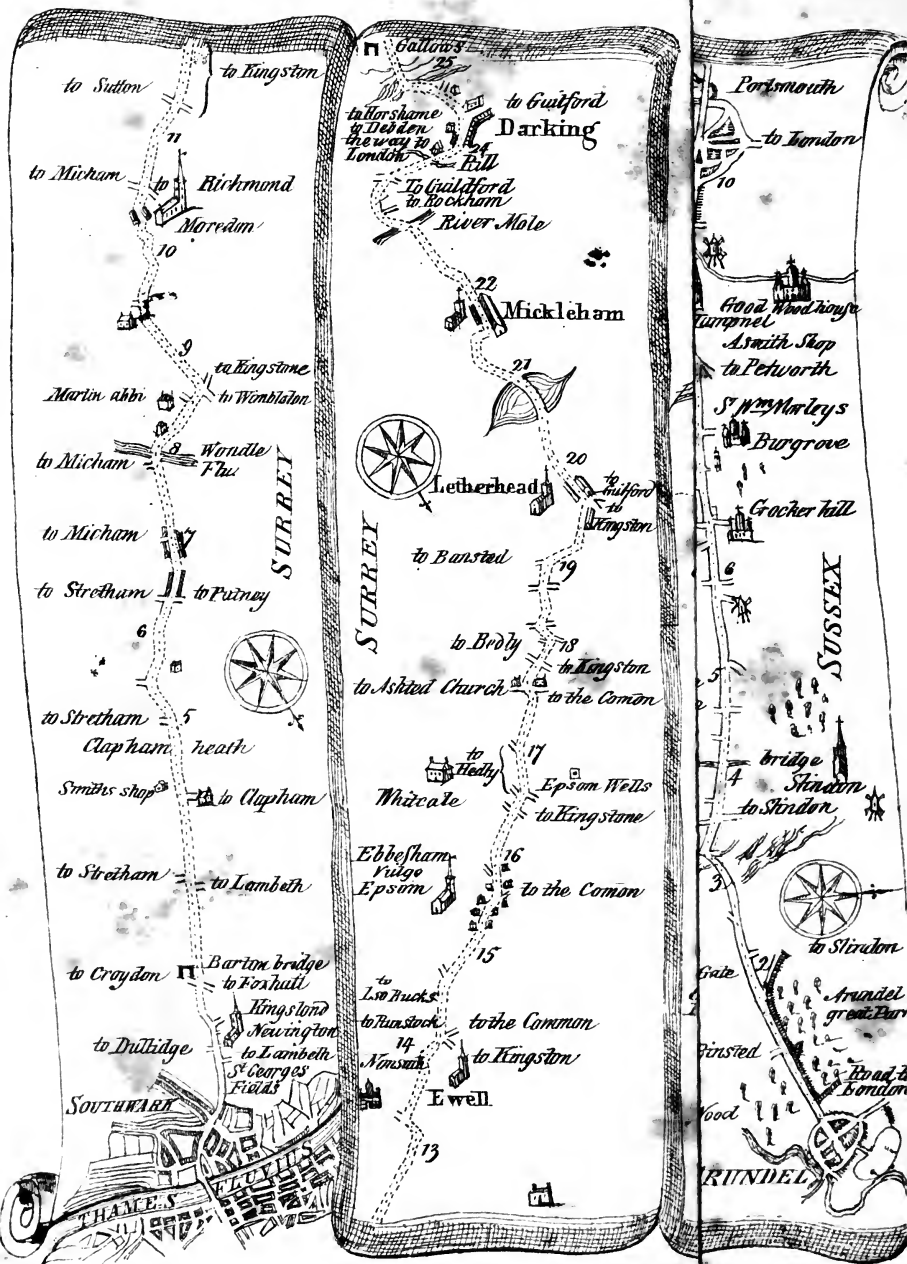 to Sutton
to Kingston
11
to Micham
to
Richmond
Moredon
10
9
to Kingstone
Martin abbi
to Wimbleton
8
Wondle
Flu
to Micham
SURREY
to Micham
7
to Stretham
to Putney
6
to Stretham
5
Clapham heath
Smiths shop
to Clapham
to Stretham
to Lambeth
to Croydon
Barton bridge
to Foxhull
Kingslond
Newington
to Dullidge
to Lambeth
St Georges
Fields
SOUTHWARK
THAMES FLUVIUS
Gallows
25
to Guilford
to Horshame
to Debden
the way to
London
Darking
24
Hill
To Guildford
to Rockham
River Mole
22
Mickleham
21
20
Letherhead
to
Guilford
to
Kingston
SURREY
to Bansted
19
to Bedly
18
to Kingston
to Ashted Church
to the Comon
17
to
Hedly
Epsom Wells
Whitcale
to Kingstone
16
Ebbesham
Vulgo
Epsom
to the Comon
15
to
to Runstock
to the Common
14
Nonsuch
to Kingston
Ewell
13
Portsmouth
to London
10
Good Wood house
A smith Shop
to Petworth
Sr Wm Morleys
Burgrove
Crocker hill
6
SUSSEX
5
bridge
Slindon
4
to Slindon
3
to Slindon
Gate
2
Arundel
great Par
Binsted
Road to
London
Wood
ARUNDEL